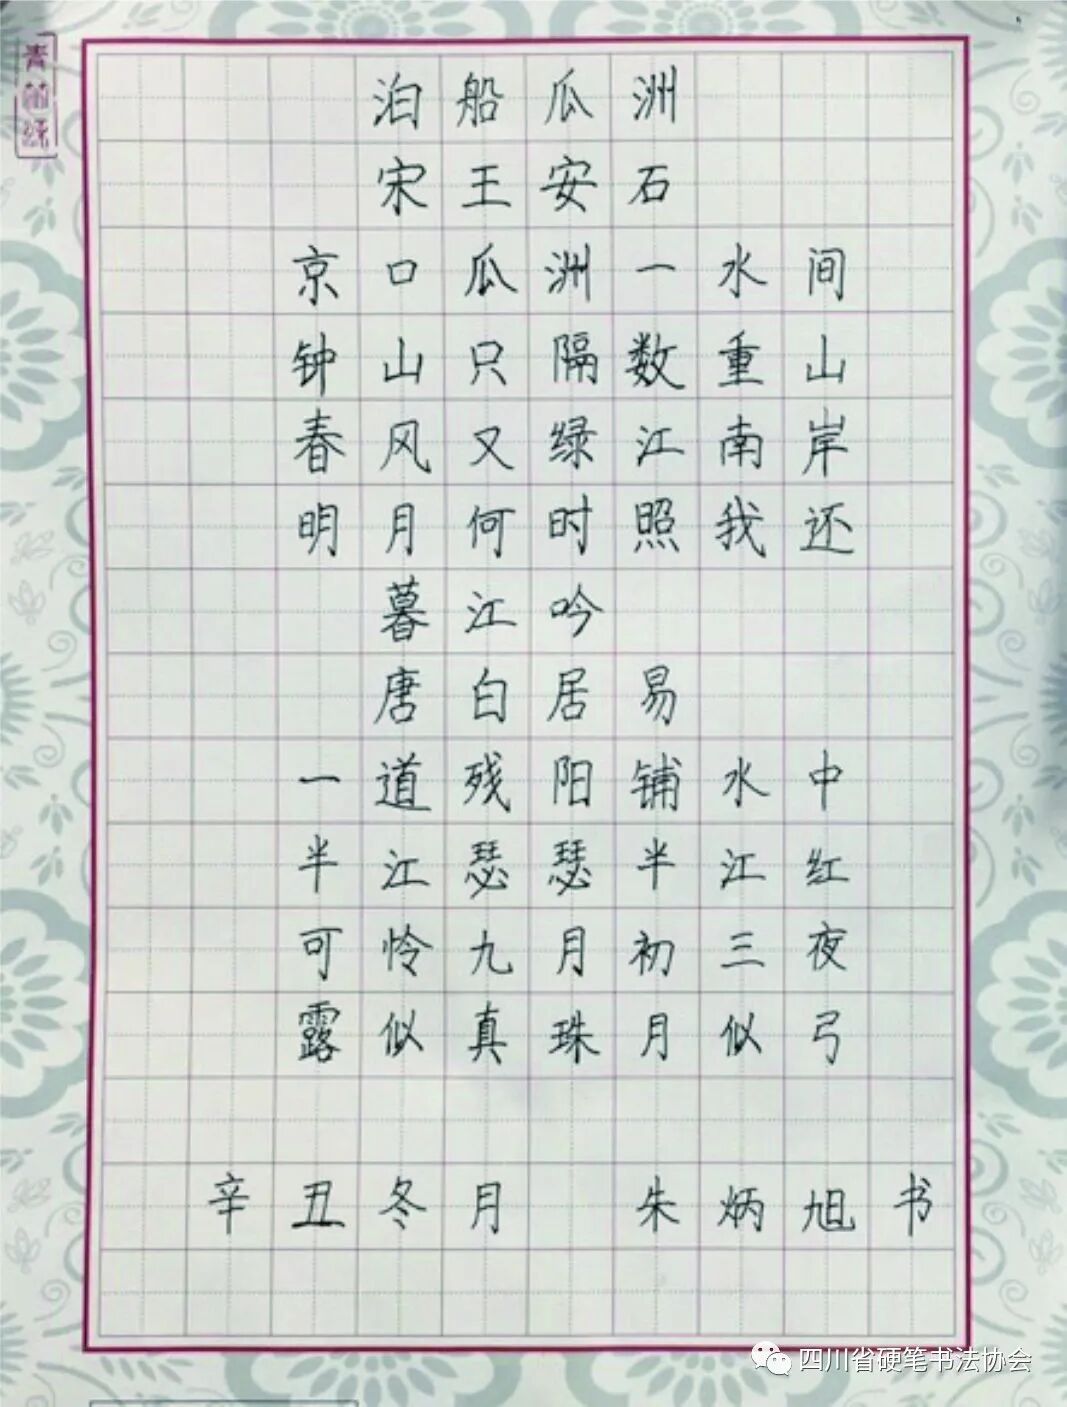 青苗练
泊船瓜洲
宋王安石
京口瓜洲一水间
钟山只隔数重山
春风又绿江南岸
明月何时照我还
暮江吟
唐白居易
一道残阳铺水中
半江瑟瑟半江红
可怜九月初三夜
露似真珠月似弓
辛丑冬月 朱炳旭书
四川省硬笔书法协会